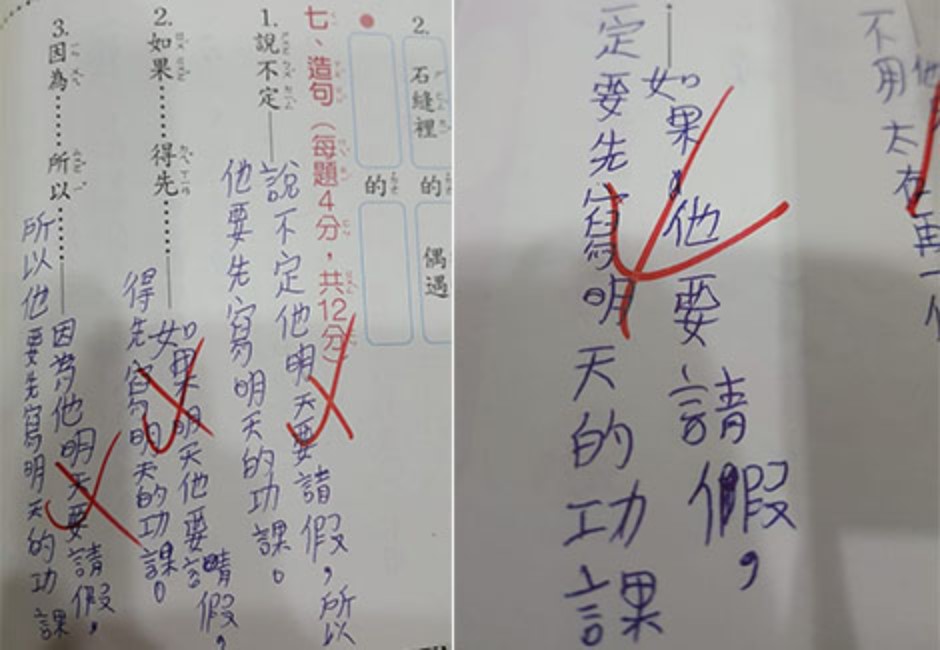 2.
石縫裡
的
的
偶遇
七、造句（每題4分，共12分）
1.
說不定
說不定他明天要請假，所以
他要先寫明天的功課。
2.
如果……得先……
如果明天他要請假，
得先寫明天的功課。
3.
因為……所以……
因為他明天要請假，
所以他要先寫明天的功課
他
不用太在
再一
如果，他要請假，
定要先寫明天的功課